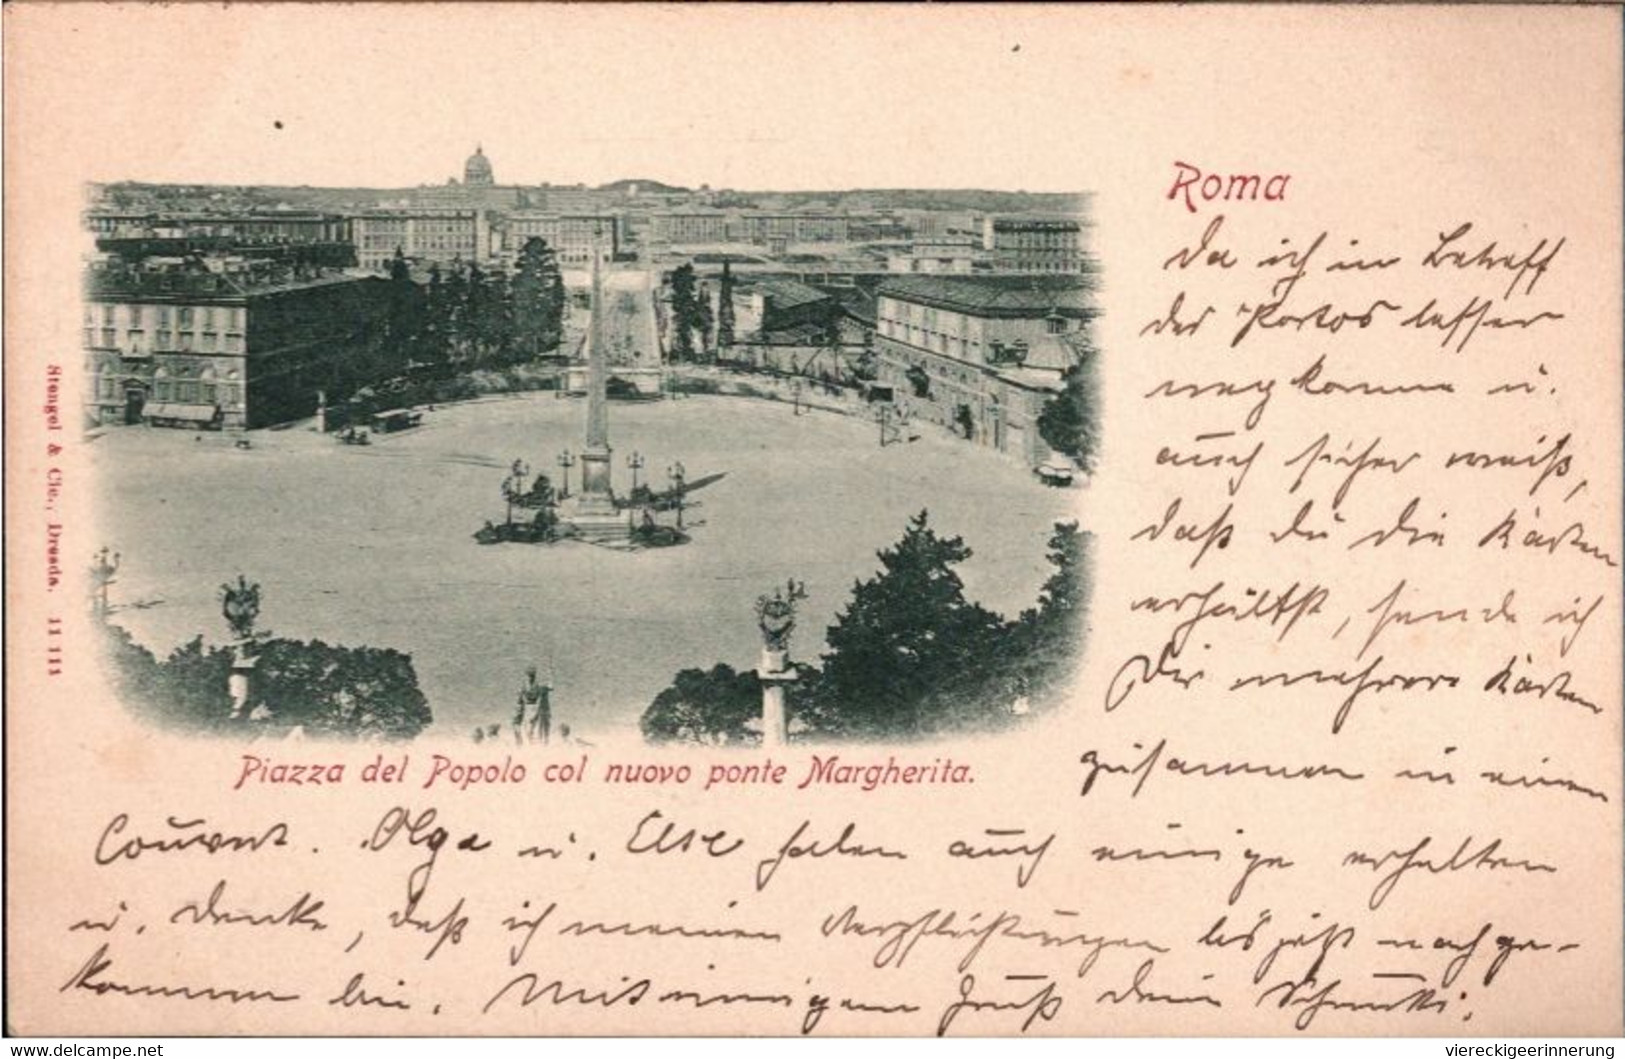 Roma
Da ich in Betreff
des Portos besser
wegkomme u.
auch sicher weiß,
daß Du die Karten
erhältst, sende ich
Dir mehrere Karten
zusammen in einem
Couvert. Olga u. Else haben auch einige erhalten
u. denke, daß ich meinen Verpflichtungen bis jetzt nachge-
kommen bin. Mit innigem Gruß Dein
Piazza del Popolo col nuovo ponte Margherita.
Stengel & Cie., Dresda. 11 111
www.delcampe.net
viereckigeerinnerung